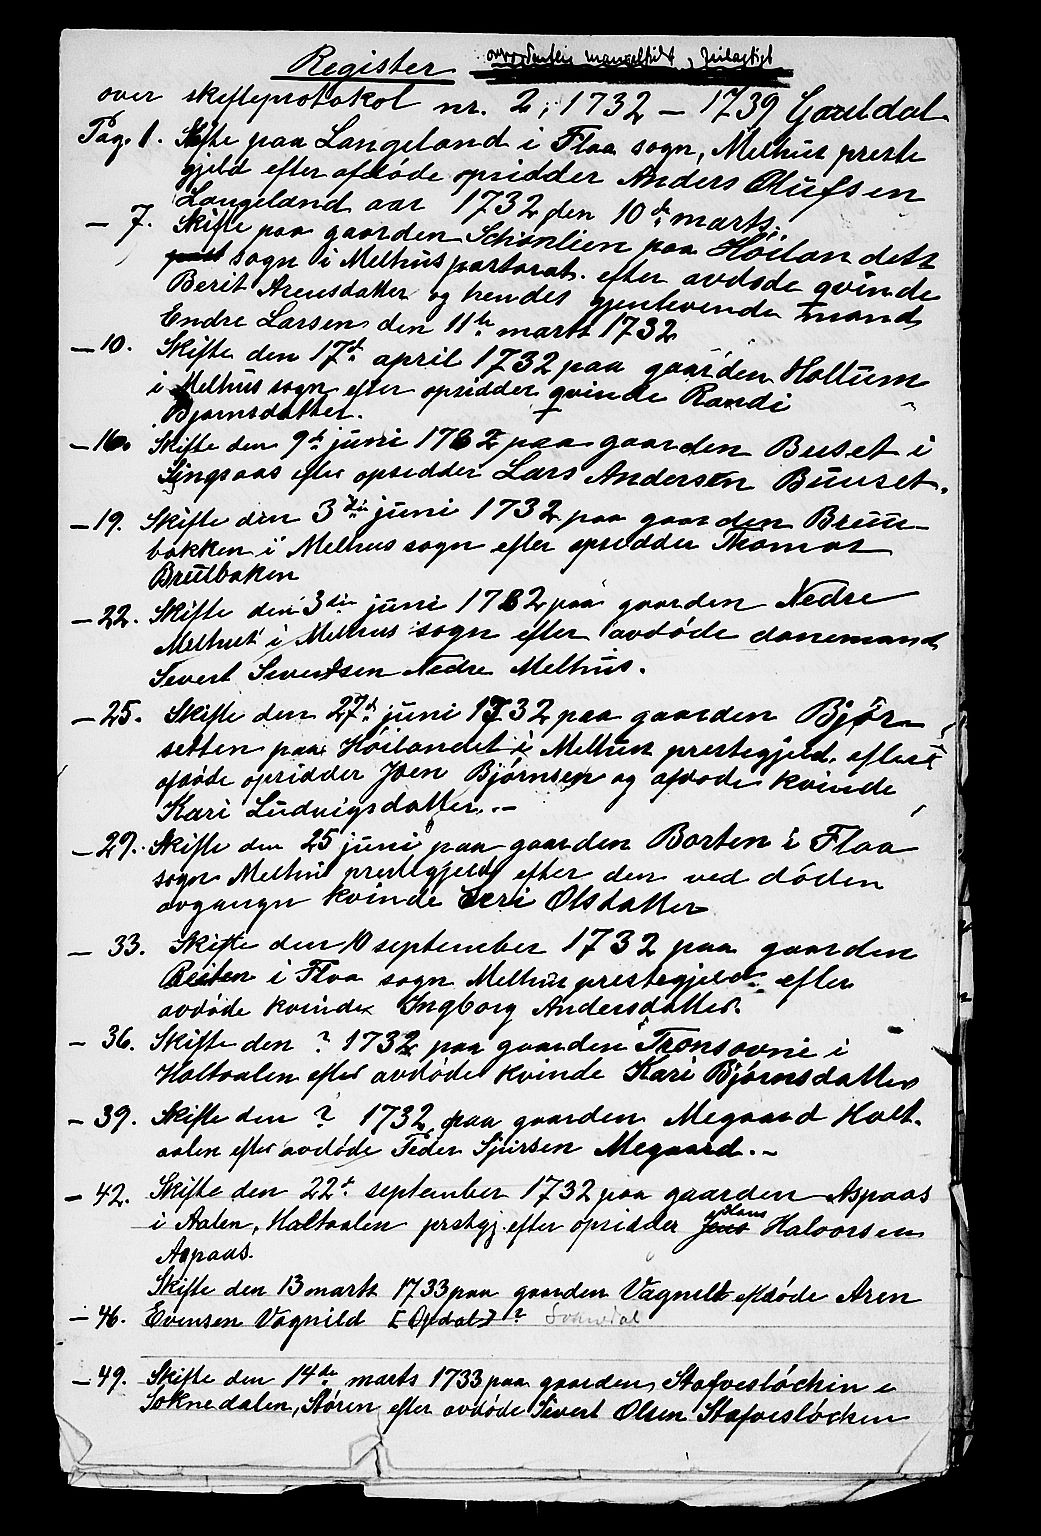 Register overordentlig mangelfuldt, feilagtigt
over skifteprotokol nr. 2, 1732 — 1739 Gauldal
Pag. 1. Skifte paa Langeland i Flaa sogn, Melhus preste
gjeld efter afdøde opsidder Anders Olufsen
Langeland aar 1732 den 10de marts.
— 7. Skifte paa gaarden Schonlien paa Höilandett
sogn i Melhus pastorat efter avdøde qvinde
Berit Arensdatter og hendes gjenlevende mand
Endre Larsen den 11te marts 1732
— 10. Skifte den 17de april 1732 paa gaarden Hollum
i Melhus sogn efter opsidder qvinde Randi
Bjørnsdatter.
— 16. Skifte den 9de juni 1732 paa gaarden Buset i
Singsaas efter opsidder Lars Andersen Buuset.
— 19. Skifte den 3die juni 1732 paa gaarden Bruu-
bakken i Melhus sogn efter opsidder Thomas
Bruubaken
— 22. Skifte den 3die juni 1732 paa gaarden Nedre
Melhus i Melhus sogn efter avdøde danemand
Severt Sivertsen Nedre Melhus.
— 25. Skifte den 27de juni 1732 paa gaarden Bjør-
setten paa Höilandet i Melhus prestegjeld, efter
afdøde opsidder Joen Bjørnsen og afdøde kvinde
Kari Ludvigsdatter. —
— 29. Skifte den 25 juni paa gaarden Borten i Flaa
sogn Melhus prestegjeld efter den ved døden
avgangn kvinde Seri Olsdatter
— 33. Skifte den 10 september 1732 paa gaarden
Reiten i Flaa sogn Melhus prestegjeld efter
avdøde kvinde Ingborg Andersdatter.
— 36. Skifte den ? 1732 paa gaarden Tronsovni i
Holtaalen efter avdøde kvinde Kari Bjørnsdatter
— 39. Skifte den ? 1732 paa gaarden Megaard Holt-
aalen efter avdøde Peder Sjursen Megaard. —
— 42. Skifte den 22de september 1732 paa gaarden Aspaas
i Aalen, Holtaalen prestgj. efter opsidder Jens Hans Halvorsen
Aspaas.
Skifte den 13 marts 1733 paa gaarden Vagnild efter døde Aren
— 46. Evensen Vagnild [Opdal] ? Soknedal
— 49. Skifte den 14de marts 1733 paa gaarden Stafvesløchin i
Soknedalen, Støren efter avdøde Sivert Olsen Stafvesløchen